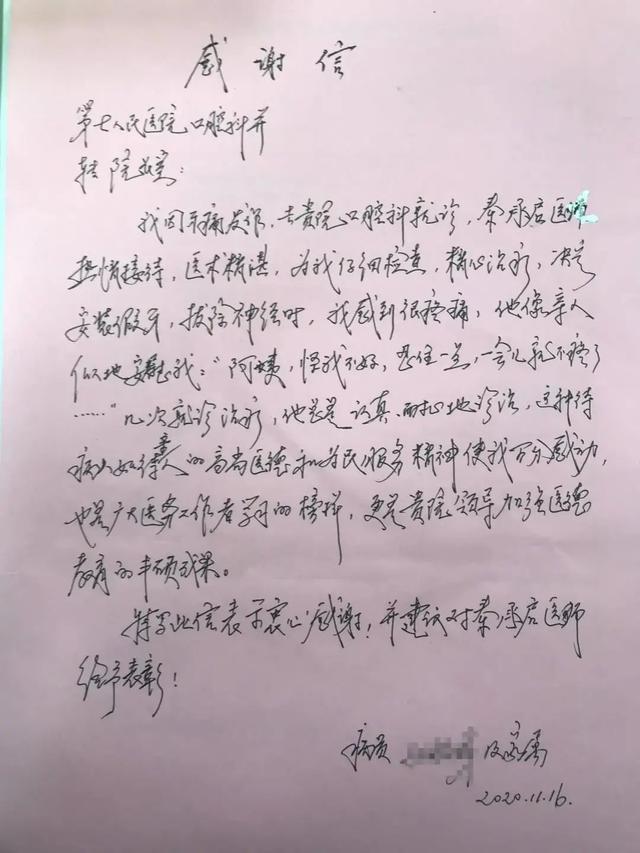 感谢信
第七人民医院口腔科并
转院办:
我因牙痛发作,去贵院口腔科就诊,秦承启医师
热情接待,医术精湛,为我仔细检查,精心治疗,决定
安装假牙,拔除神经时,我感到很疼痛,他像亲人
似地安慰我:“阿姨,怪我不好,忍住一点,一会儿就不疼了
……”几次就诊治疗,他总是认真、耐心地诊治,这种待
病人如待亲人的高尚医德和为民服务精神使我万分感动,
也是广大医务工作者学习的榜样,更是贵院领导加强医德
教育的丰硕成果。
特写此信表示衷心感谢!并建议对秦承启医师
给予表彰!
病员 及家属
2020.11.16.